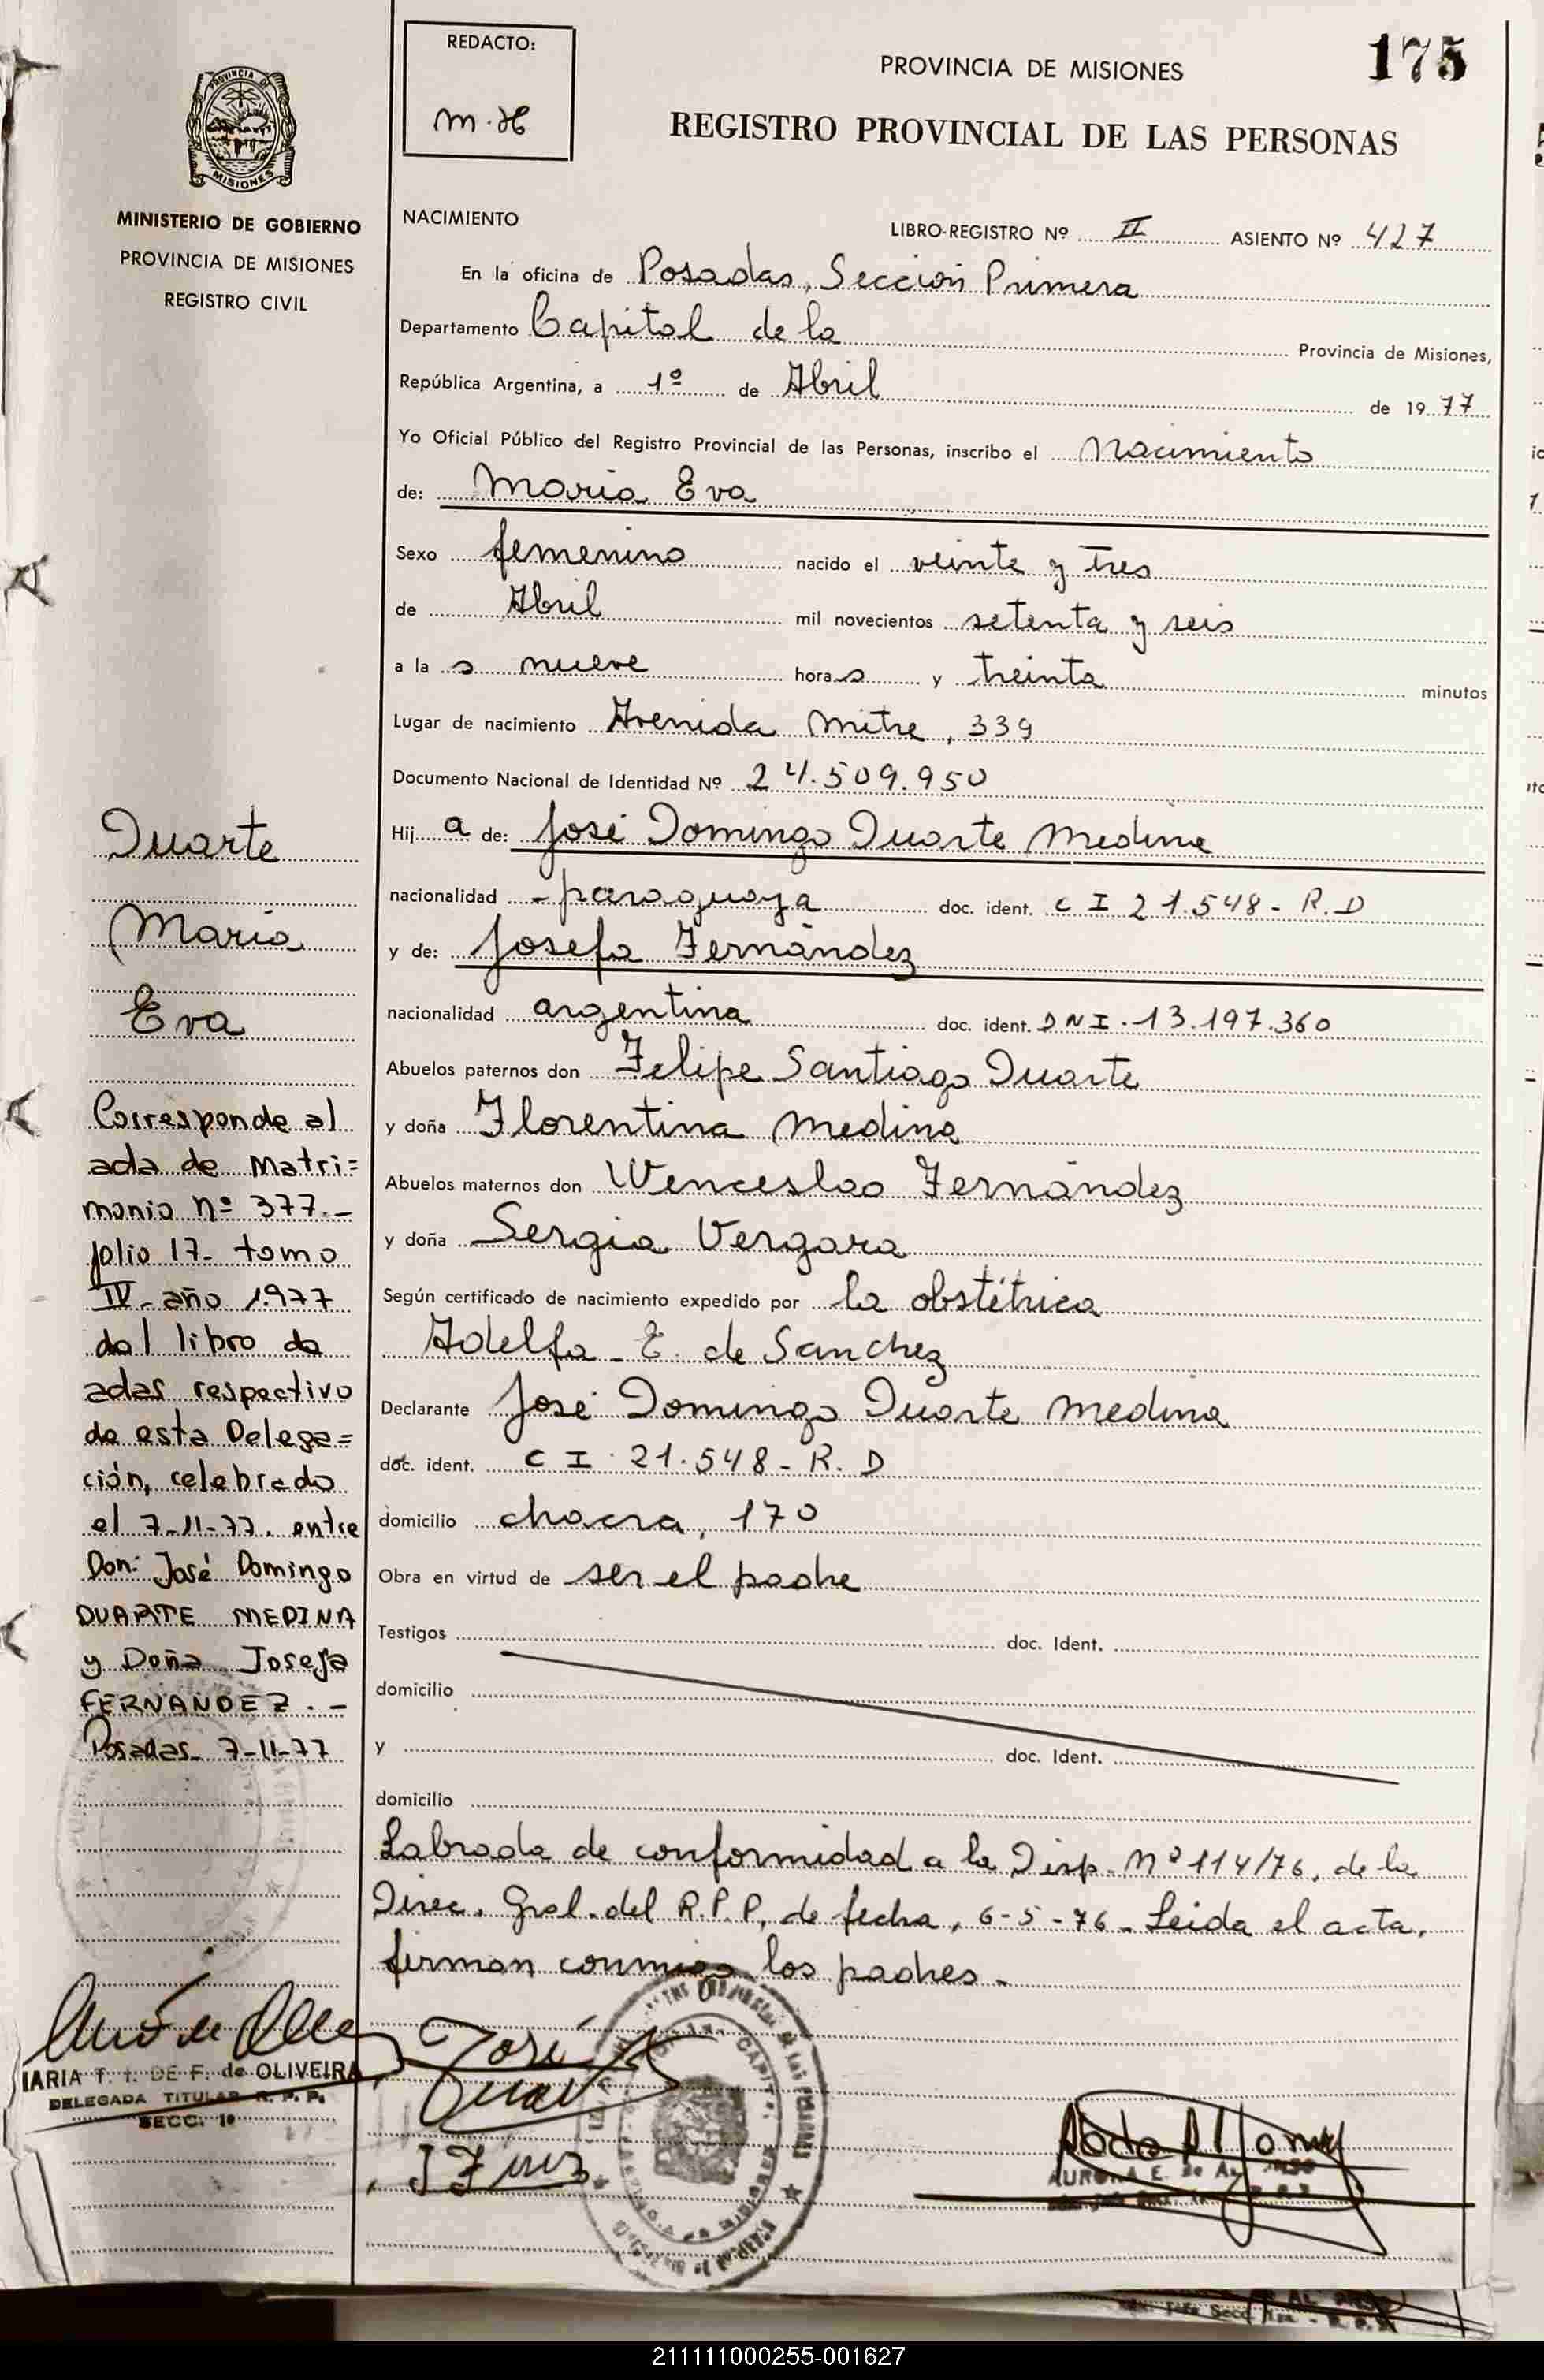 175
REDACTO:
m.H
PROVINCIA DE MISIONES
REGISTRO PROVINCIAL DE LAS PERSONAS
PROVINCIA DE
MISIONES
MINISTERIO DE GOBIERNO
PROVINCIA DE MISIONES
REGISTRO CIVIL
NACIMIENTO
LIBRO-REGISTRO Nº II ASIENTO Nº 427
En la oficina de Posadas, Sección Primera
Departamento Capital de la Provincia de Misiones,
República Argentina, a 1º de Abril de 1977
Yo Oficial Público del Registro Provincial de las Personas, inscribo el Nacimiento
de: Maria Eva
Sexo femenino nacido el veinte y tres
de Abril mil novecientos setenta y seis
a las nueve horas y treinta minutos
Lugar de nacimiento Avenida Mitre, 339
Documento Nacional de Identidad Nº 24.509.950
Hija de: José Domingo Duarte Medina
nacionalidad -paraguaya doc. ident. C I 21.548- R.D
y de: Josefa Fernández
nacionalidad argentina doc. ident. DNI.13.197.360
Abuelos paternos don Felipe Santiago Duarte
y doña Florentina Medina
Abuelos maternos don Wenceslao Fernández
y doña Sergia Vergara
Según certificado de nacimiento expedido por la obstétrica
Adelfa E. de Sanchez
Declarante José Domingo Duarte Medina
doc. ident. C I. 21.548- R. D
domicilio chacra, 170
Obra en virtud de ser el padre
Testigos doc. Ident.
domicilio
y doc. Ident.
domicilio
Labrada de conformidad a la Disp. Nº 114/76, de la
Direc. Gral. del R.P.P, de fecha, 6-5-76- Leida el acta,
firman conmigo los padres-
Duarte
Maria
Eva
Corresponde al
acta de Matri=
monio nº 377.-
folio 17- tomo
IV- año 1977
del libro de
actas respectivo
de esta Delega=
ción, celebrado
el 7-11-77. entre
Don: José Domingo
DUARTE MEDINA
y Doña Josefa
FERNANDEZ.-
Posadas- 7-11-77
IARIA T. I. DE F. de OLIVEIRA
DELEGADA TITULAR R. P. P.
SECC. 1º
José
AURORA E. de
211111000255-001627